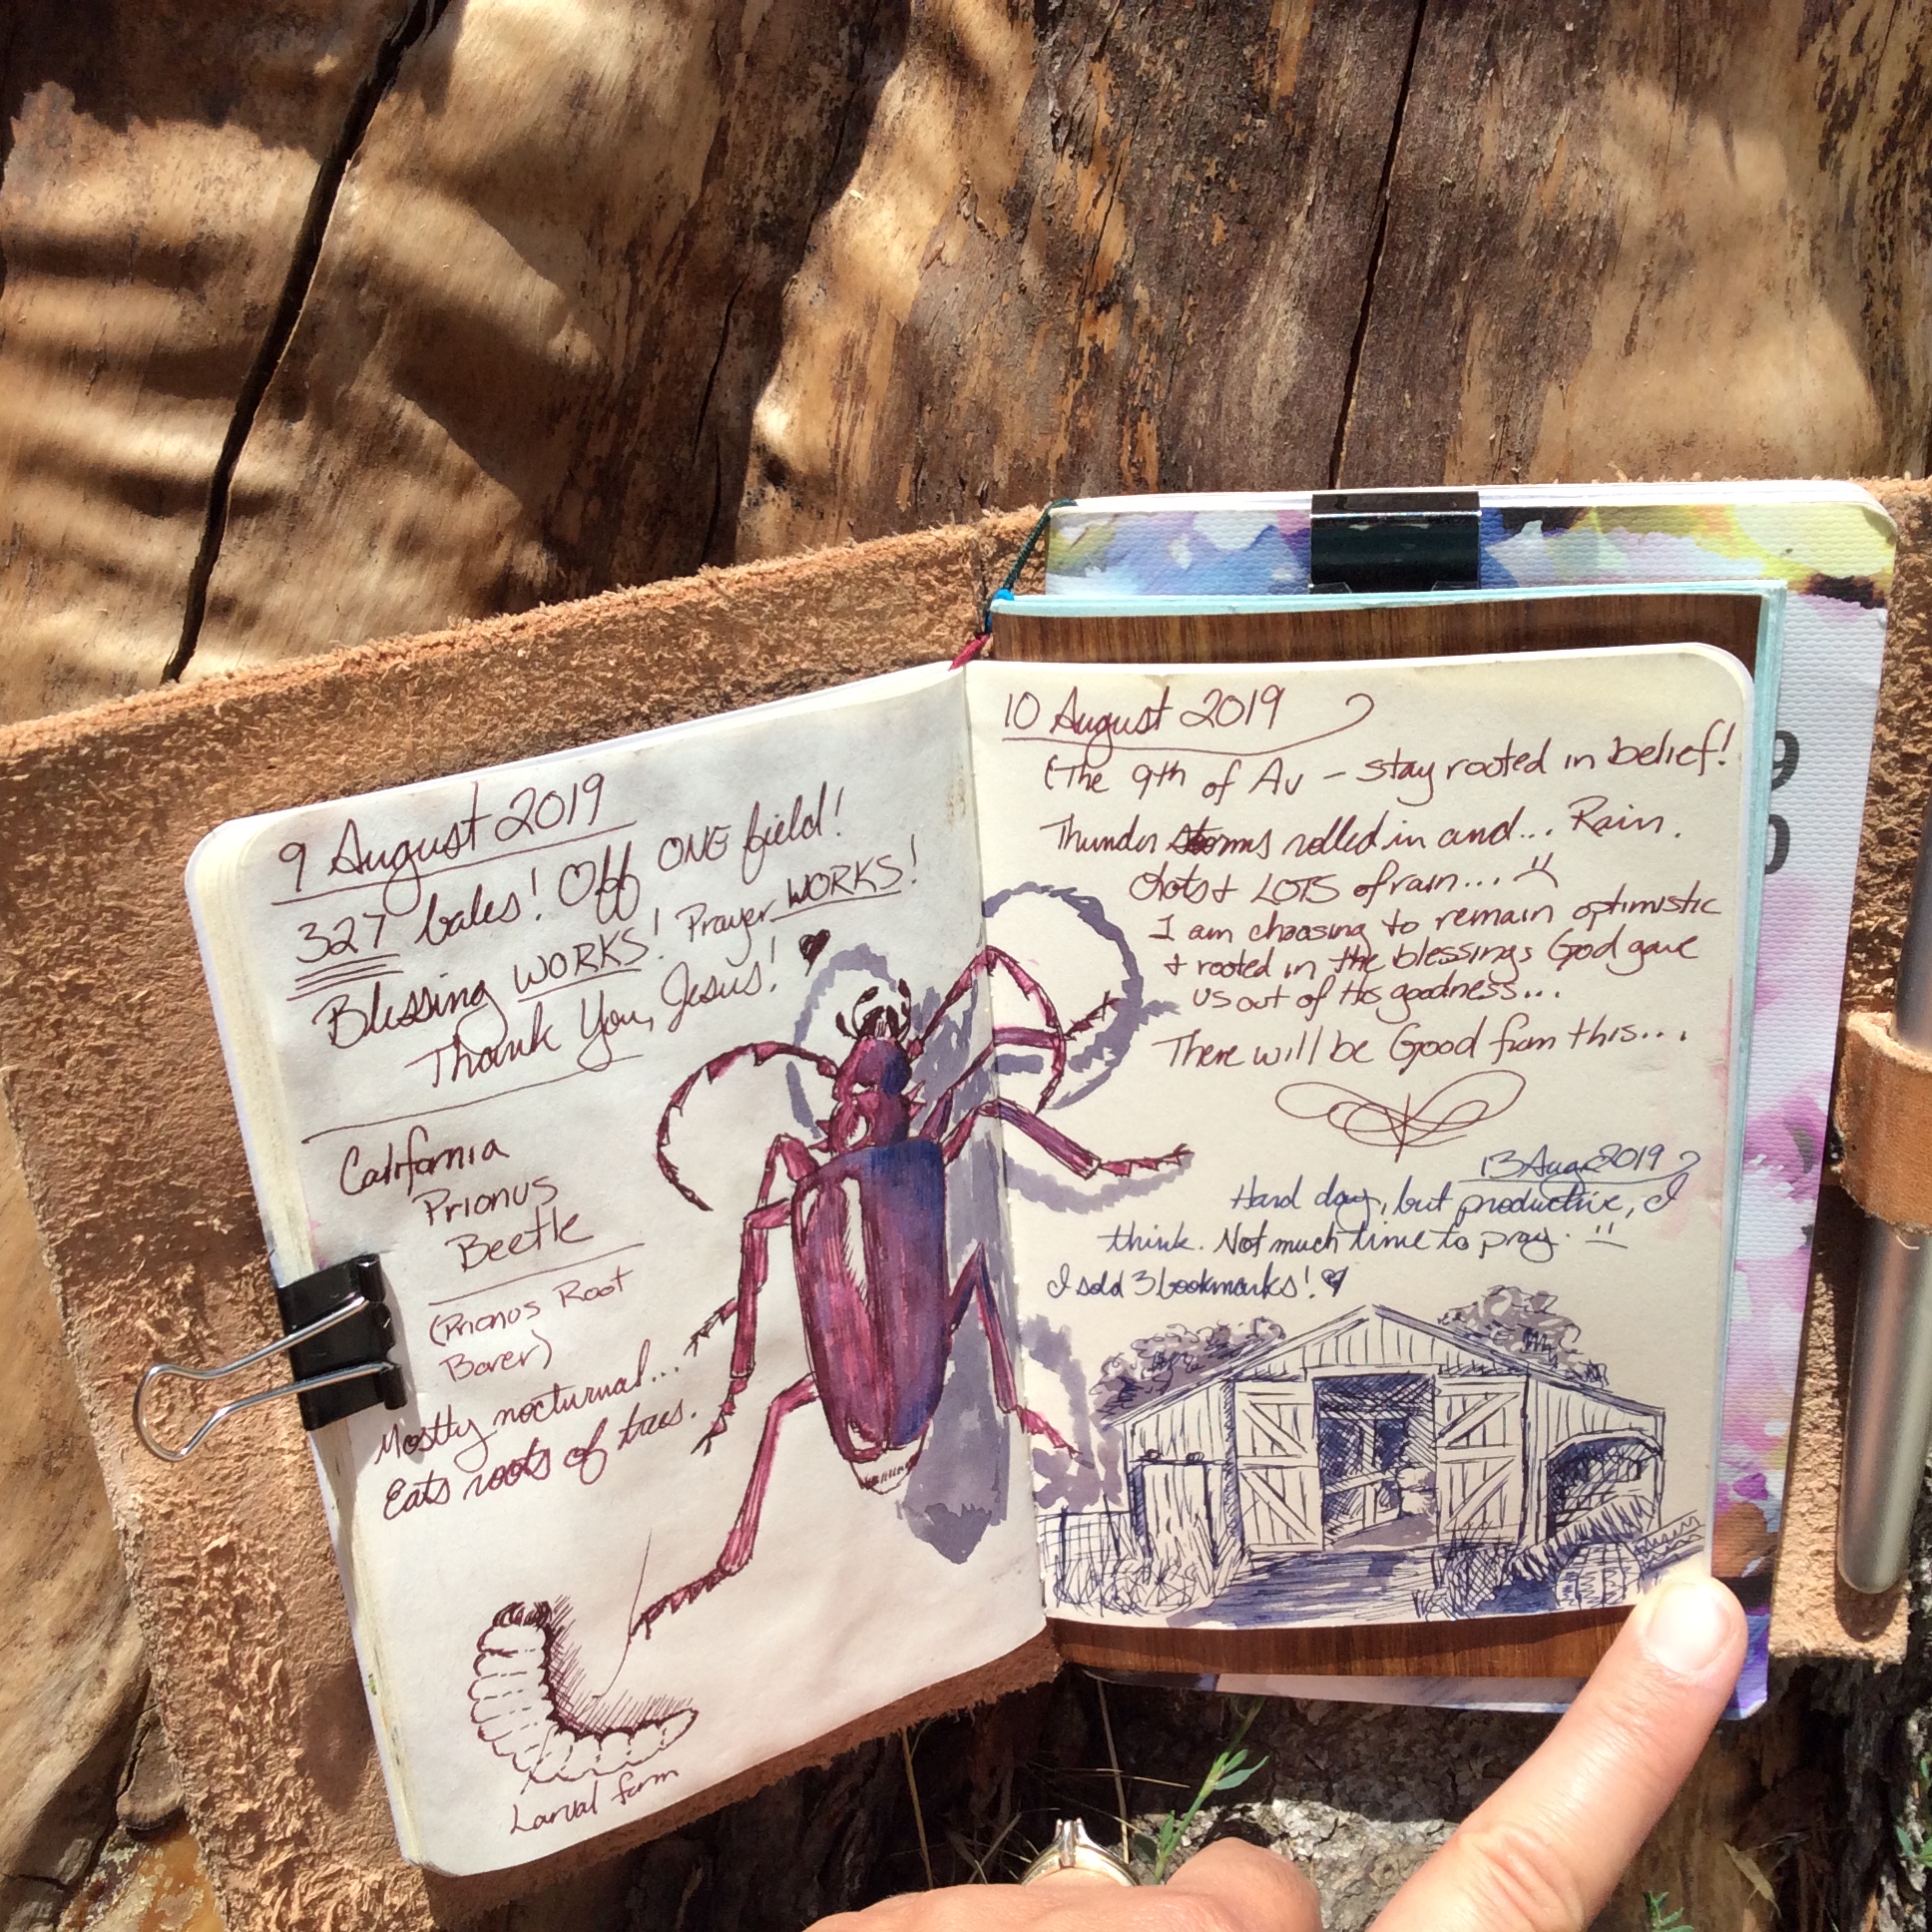 9 August 2019
327 bales! Off ONE field!
Blessing WORKS! Prayer WORKS!
Thank You, Jesus!
California
Prionus
Beetle
(Prionus Root
Borer)
Mostly nocturnal...
Eats roots of trees.
Larval form
10 August 2019
(The 9th of Av – stay rooted in belief!
Thunder storms rolled in and... Rain.
Lots & LOTS of rain...
I am choosing to remain optimistic
& rooted in the blessings God gave
us out of His goodness...
There will be Good from this...
13 Aug 2019
Hard day, but productive, I
think. Not much time to pray.
I sold 3 bookmarks!
9
0